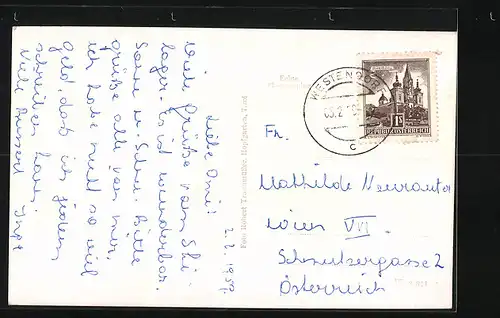 2.2.1959.
Liebe Omi!
Viele Grüße vom Ski-
lager. Es ist wunderbar.
Sonne u. Schnee. Bitte
grüße alle von mir,
ich habe nicht so viel
Geld, daß ich jedem
schreiben kann.
Viele Busserl
Inge
Foto Robert Hopfgarten, Tirol
WESTENDORF
c
1S
REPUBLIK ÖSTERREICH
Fr.
Mathilde
Wien VII.
2
Österreich